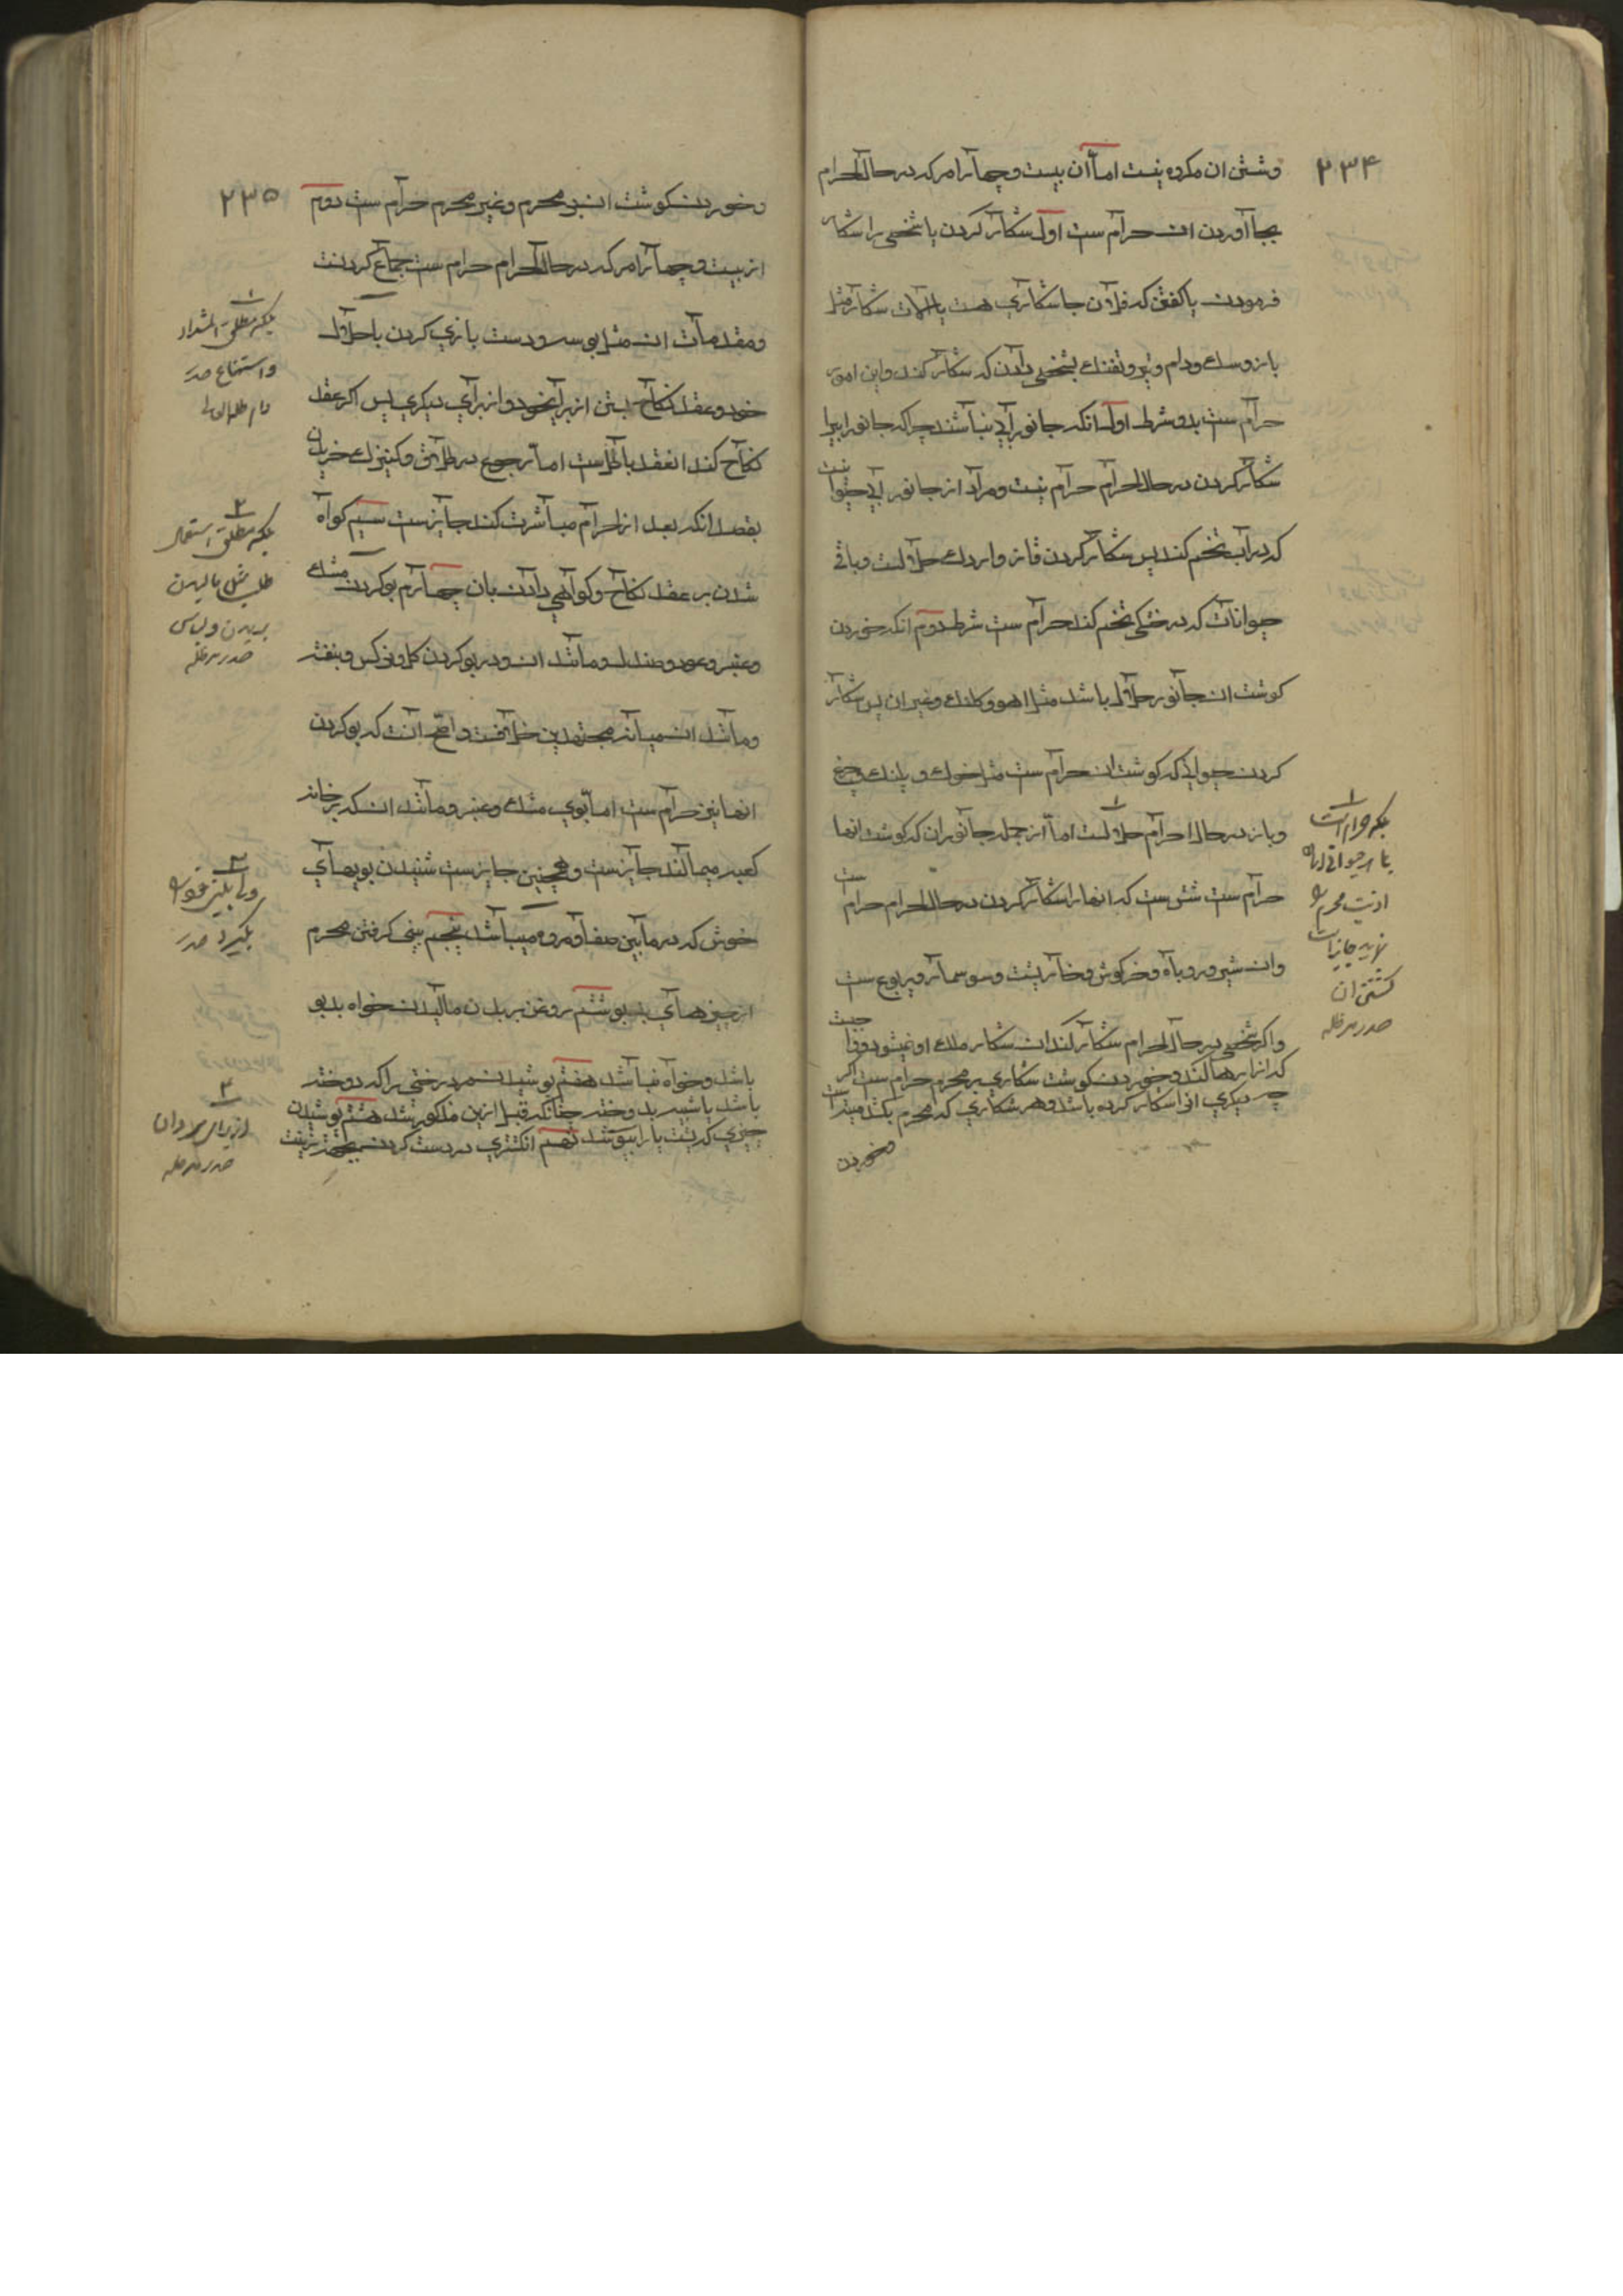 ۲۳۴
وشستن ان مکروه نیست اما ان بیست و چهار امر که در حال احرام
بجا آوردن ان حرام ست اول شکار کردن یا شخصی را شکار
فرمودن یا کفتن که فلان جا شکاری هست یا الات شکار مثل
باز و سک و دام و تیر و تفنک بشخصی دادن که شکار کند و این امور
حرام ست بدو شرط اول انکه جانور ابی نباشد چرا که جانور ابی را
شکار کردن در حال احرام حرام نیست و مراد از جانور ابی حیوانیست
که در اب تخم کند پس شکار کردن قاز و اردک حلال نیست و باقی
حیوانات که در خشکی تخم کند حرام ست شرط دوم انکه خوردن
کوشت ان جانور حلال باشد مثل اهو و کلنک و غیر ان پس شکار
کردن حیوانی که کوشت ان حرام ست مثل خوک و پلنک و چرغ
و باز در حال احرام حلال ست اما از جمله جانوران که کوشت انها
حرام ست شش ست که انها را شکار کردن در حال احرام حرام ست
وان شیر و روباه و خرکوش و خارپشت و سوسمار و یربوع ست
و اکر شخصی در حال احرام شکار کند ان شکار ملک او نمیشود و واجبست
که انرا رها کند و خوردن کوشت شکاری بر محرم حرام ست اکر
چه دیکری انرا شکار کرده باشد و هر شکاری که محرم بکشد میته است
وخوردن
۱
بلکه حرام است
اذیت محرم
جایز است
کشتن ان
صدر مد ظله
۲۳۵
وخوردن کوشت ان بر محرم و غیر محرم حرام ست دوم
از بیست و چهار امر که در حال احرام حرام ست جماع کردنست
ومقدمات ان مثل بوسه و دست بازی کردن با حلال
خود و عقد نکاح بستن از برای خود و از برای دیکری پس اکر عقد
نکاح کند ان عقد باطل ست اما رجوع در طلاق و کنیزک خریدن
بقصد انکه بعد از احرام مباشرت کند جایز ست سیم کواه
شدن بر عقد نکاح و کواهی دادن بان چهارم بو کردن مشک
وعنبر و عود و صندل و مانند ان و در بو کردن کل و نرکس و بنفشه
ومانند ان میانه مجتهدین خلافست و اصح آنست که بو کردن
انها نیز حرام ست اما بوی مشک و عنبر و مانند ان که بر خانه
کعبه میمالند جایز ست و همچنین جایز ست شنیدن بویهای
خوش که در مابین صفا و مروه میباشد پنجم بینی کرفتن محرم
از چیزهای بد بو ششم روغن بر بدن مالیدن خواه بدبو
باشد و خواه نباشد هفتم پوشیدن مرد رختی را که دوخته
باشد یا شبیه بدوخته چنانکه قبل ازین مذکور شد هشتم پوشیدن
چیزی که پشت پا را بپوشد نهم انکشتری در دست کردن بجهة زینت
۱
بلکه مطلق التذاذ
واستمتاع صدر
دام ظله العالی
۲
بلکه مطلق استعمال
طیب مثل مالیدن
ببدن و لباس
صدر مد ظله
۳
بکیرد صدر
۴
از برای مردان
صدر مد ظله